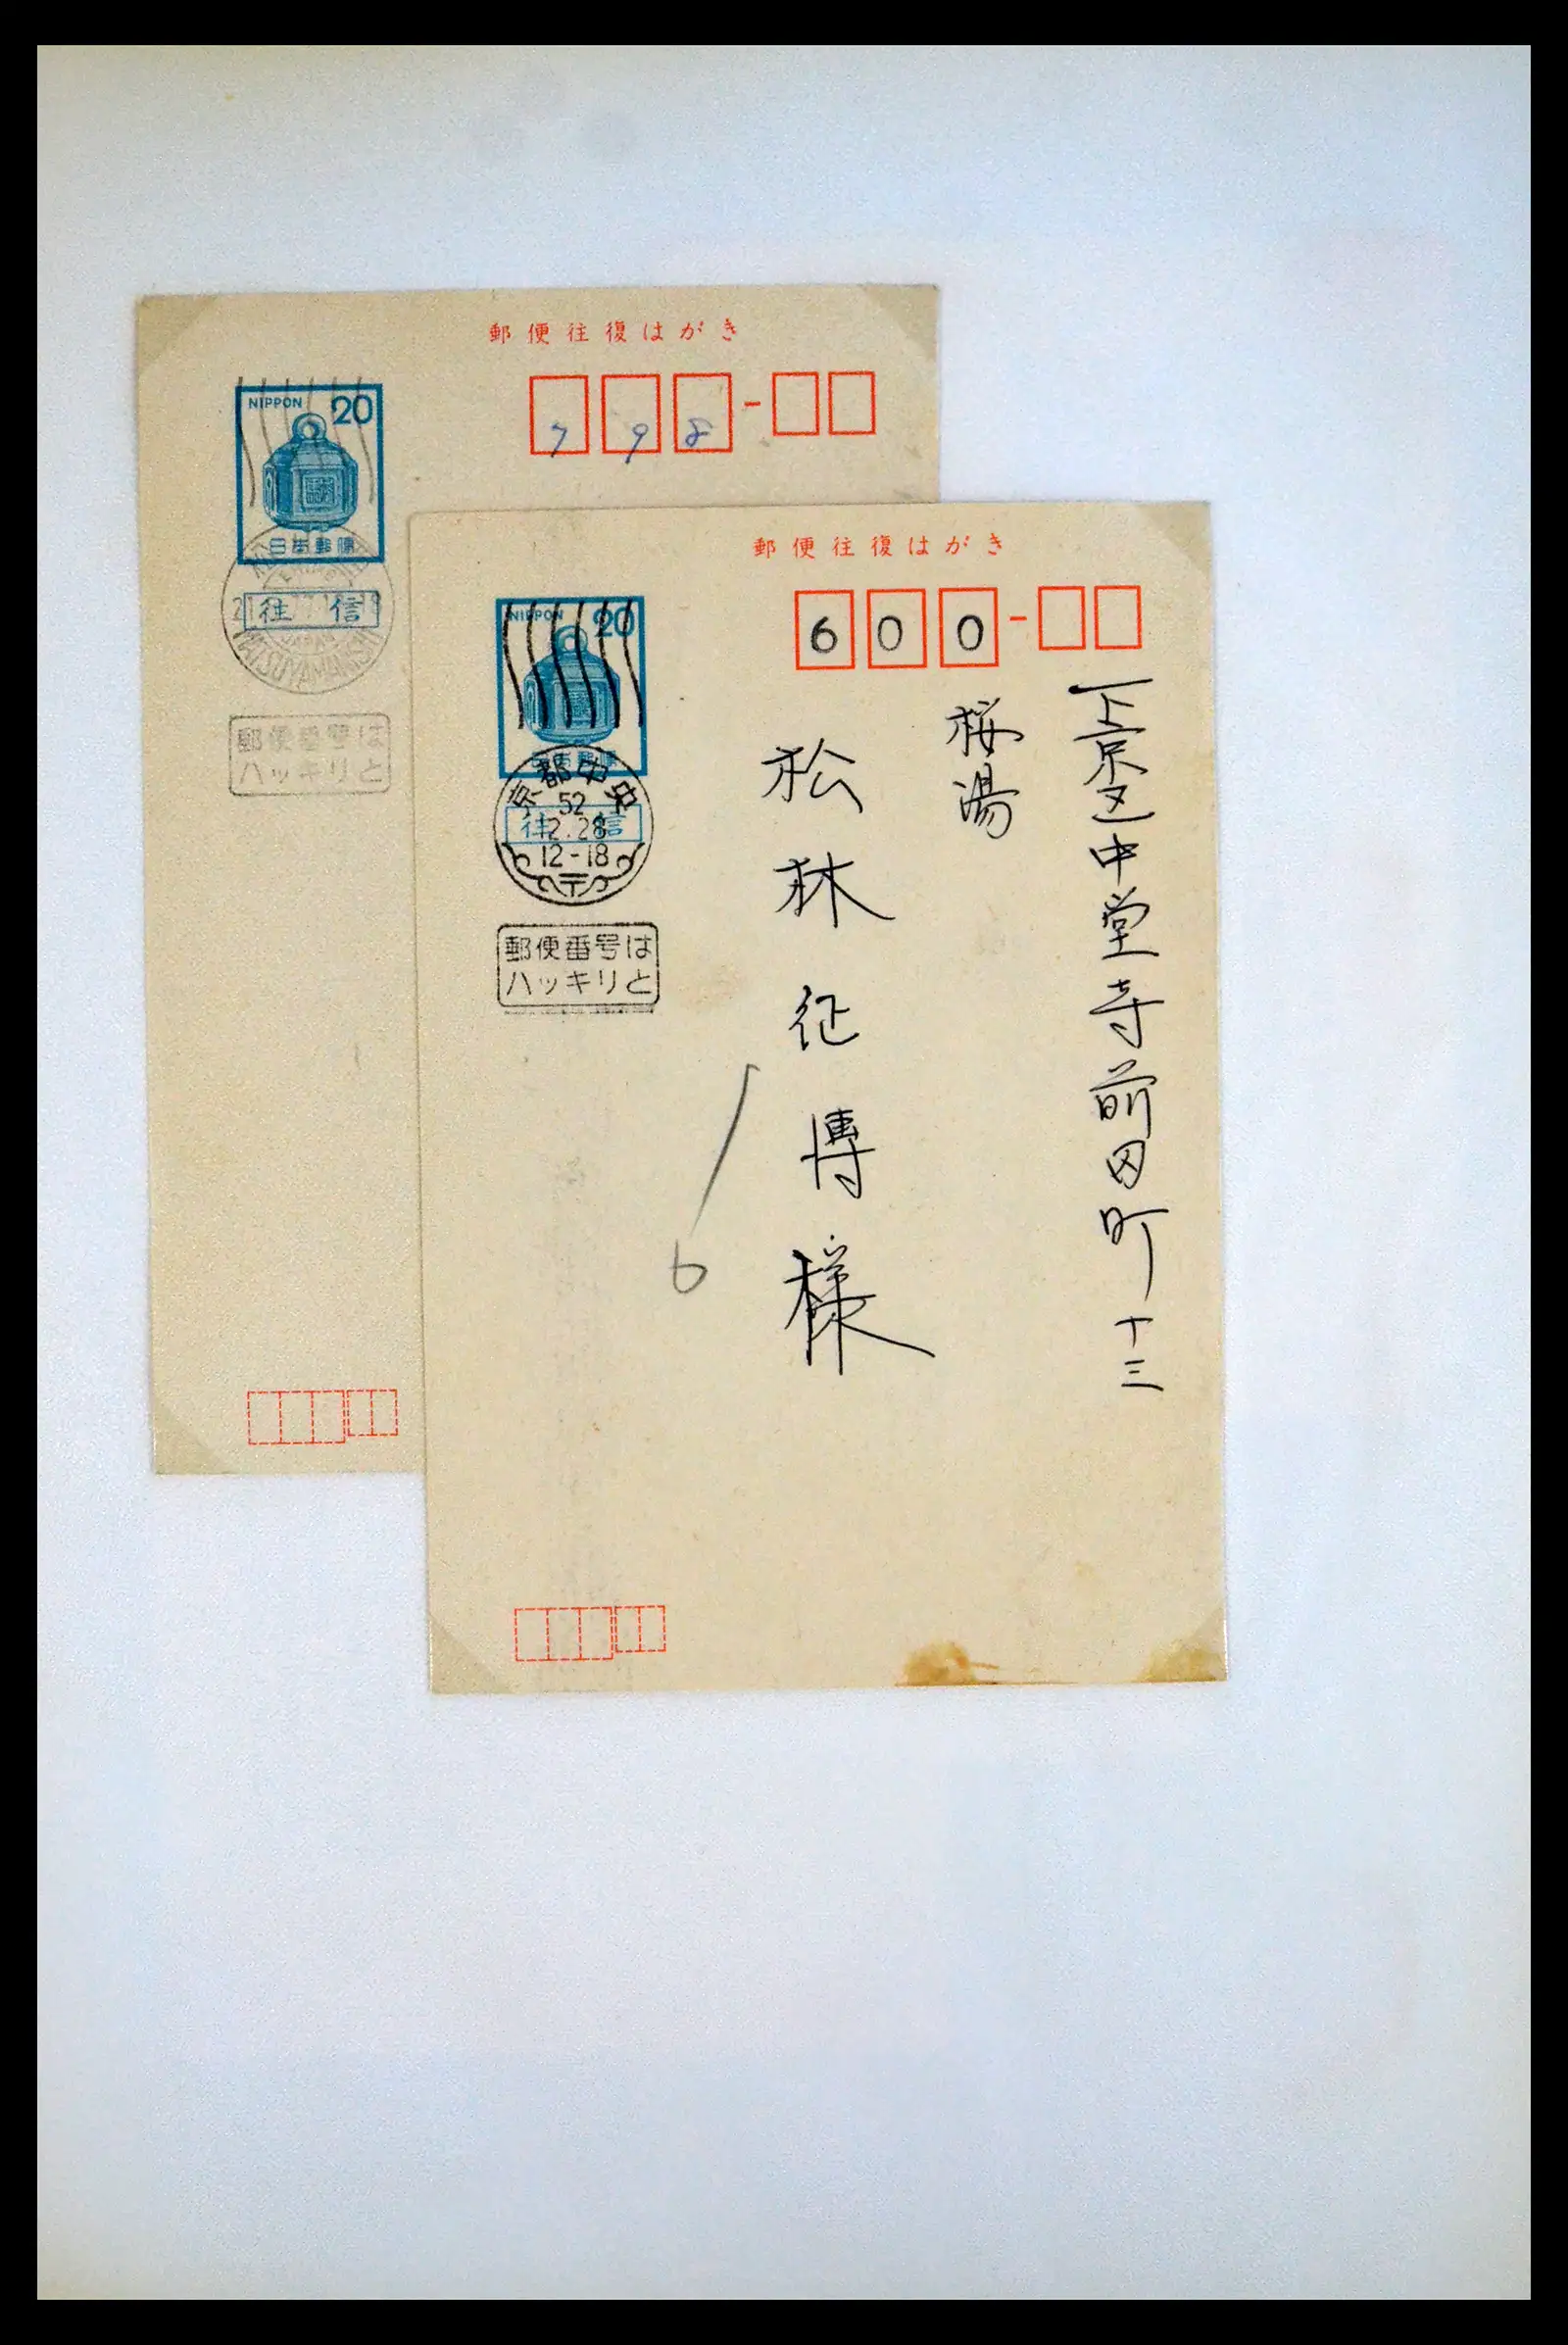 郵便往復はがき
798
NIPPON 20
日本郵便
往信
MATSUYAMANISHI
郵便番号は
ハッキリと
郵便往復はがき
600
NIPPON 20
日本郵便
京都中央
52
12.28
12-18
〒
往信
郵便番号は
ハッキリと
下京区中堂寺前田町十三
桜湯
松林征博様
6